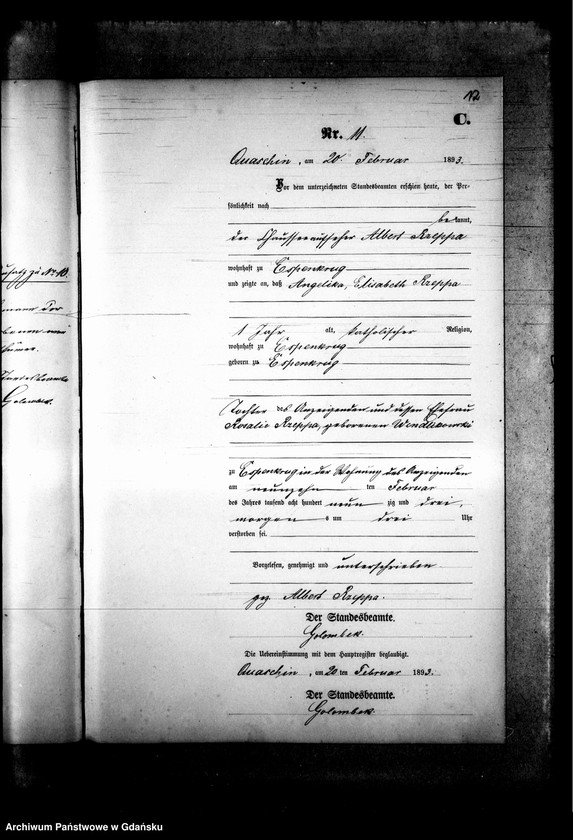 12
C.
Nr. 11.
Quaschin, am 20. Februar 1893.
Vor dem unterzeichneten Standesbeamten erschien heute, der Per-
sönlichkeit nach
bekannt,
der Chausseeaufseher Albert Rzeppa
wohnhaft zu Espenkrug
und zeigte an, daß Angelika, Elisabeth Rzeppa
1 Jahr alt, katholischer Religion,
wohnhaft zu Espenkrug
geboren zu Espenkrug
Tochter des Anzeigenden und dessen Ehefrau
Rosalie Rzeppa, geborenen
zu Espenkrug in der Wohnung des Anzeigenden
am neunzehnten Februar
des Jahres tausend acht hundert neunzig und drei,
morgens um drei Uhr
verstorben sei.
Vorgelesen, genehmigt und unterschrieben
gez. Albert Rzeppa.
Der Standesbeamte.
Golombek.
Die Uebereinstimmung mit dem Hauptregister beglaubigt.
Quaschin, am 20 ten Februar 1893.
Der Standesbeamte.
Golombek.
zu No. 10.
Golombek.
Archiwum Państwowe w Gdańsku